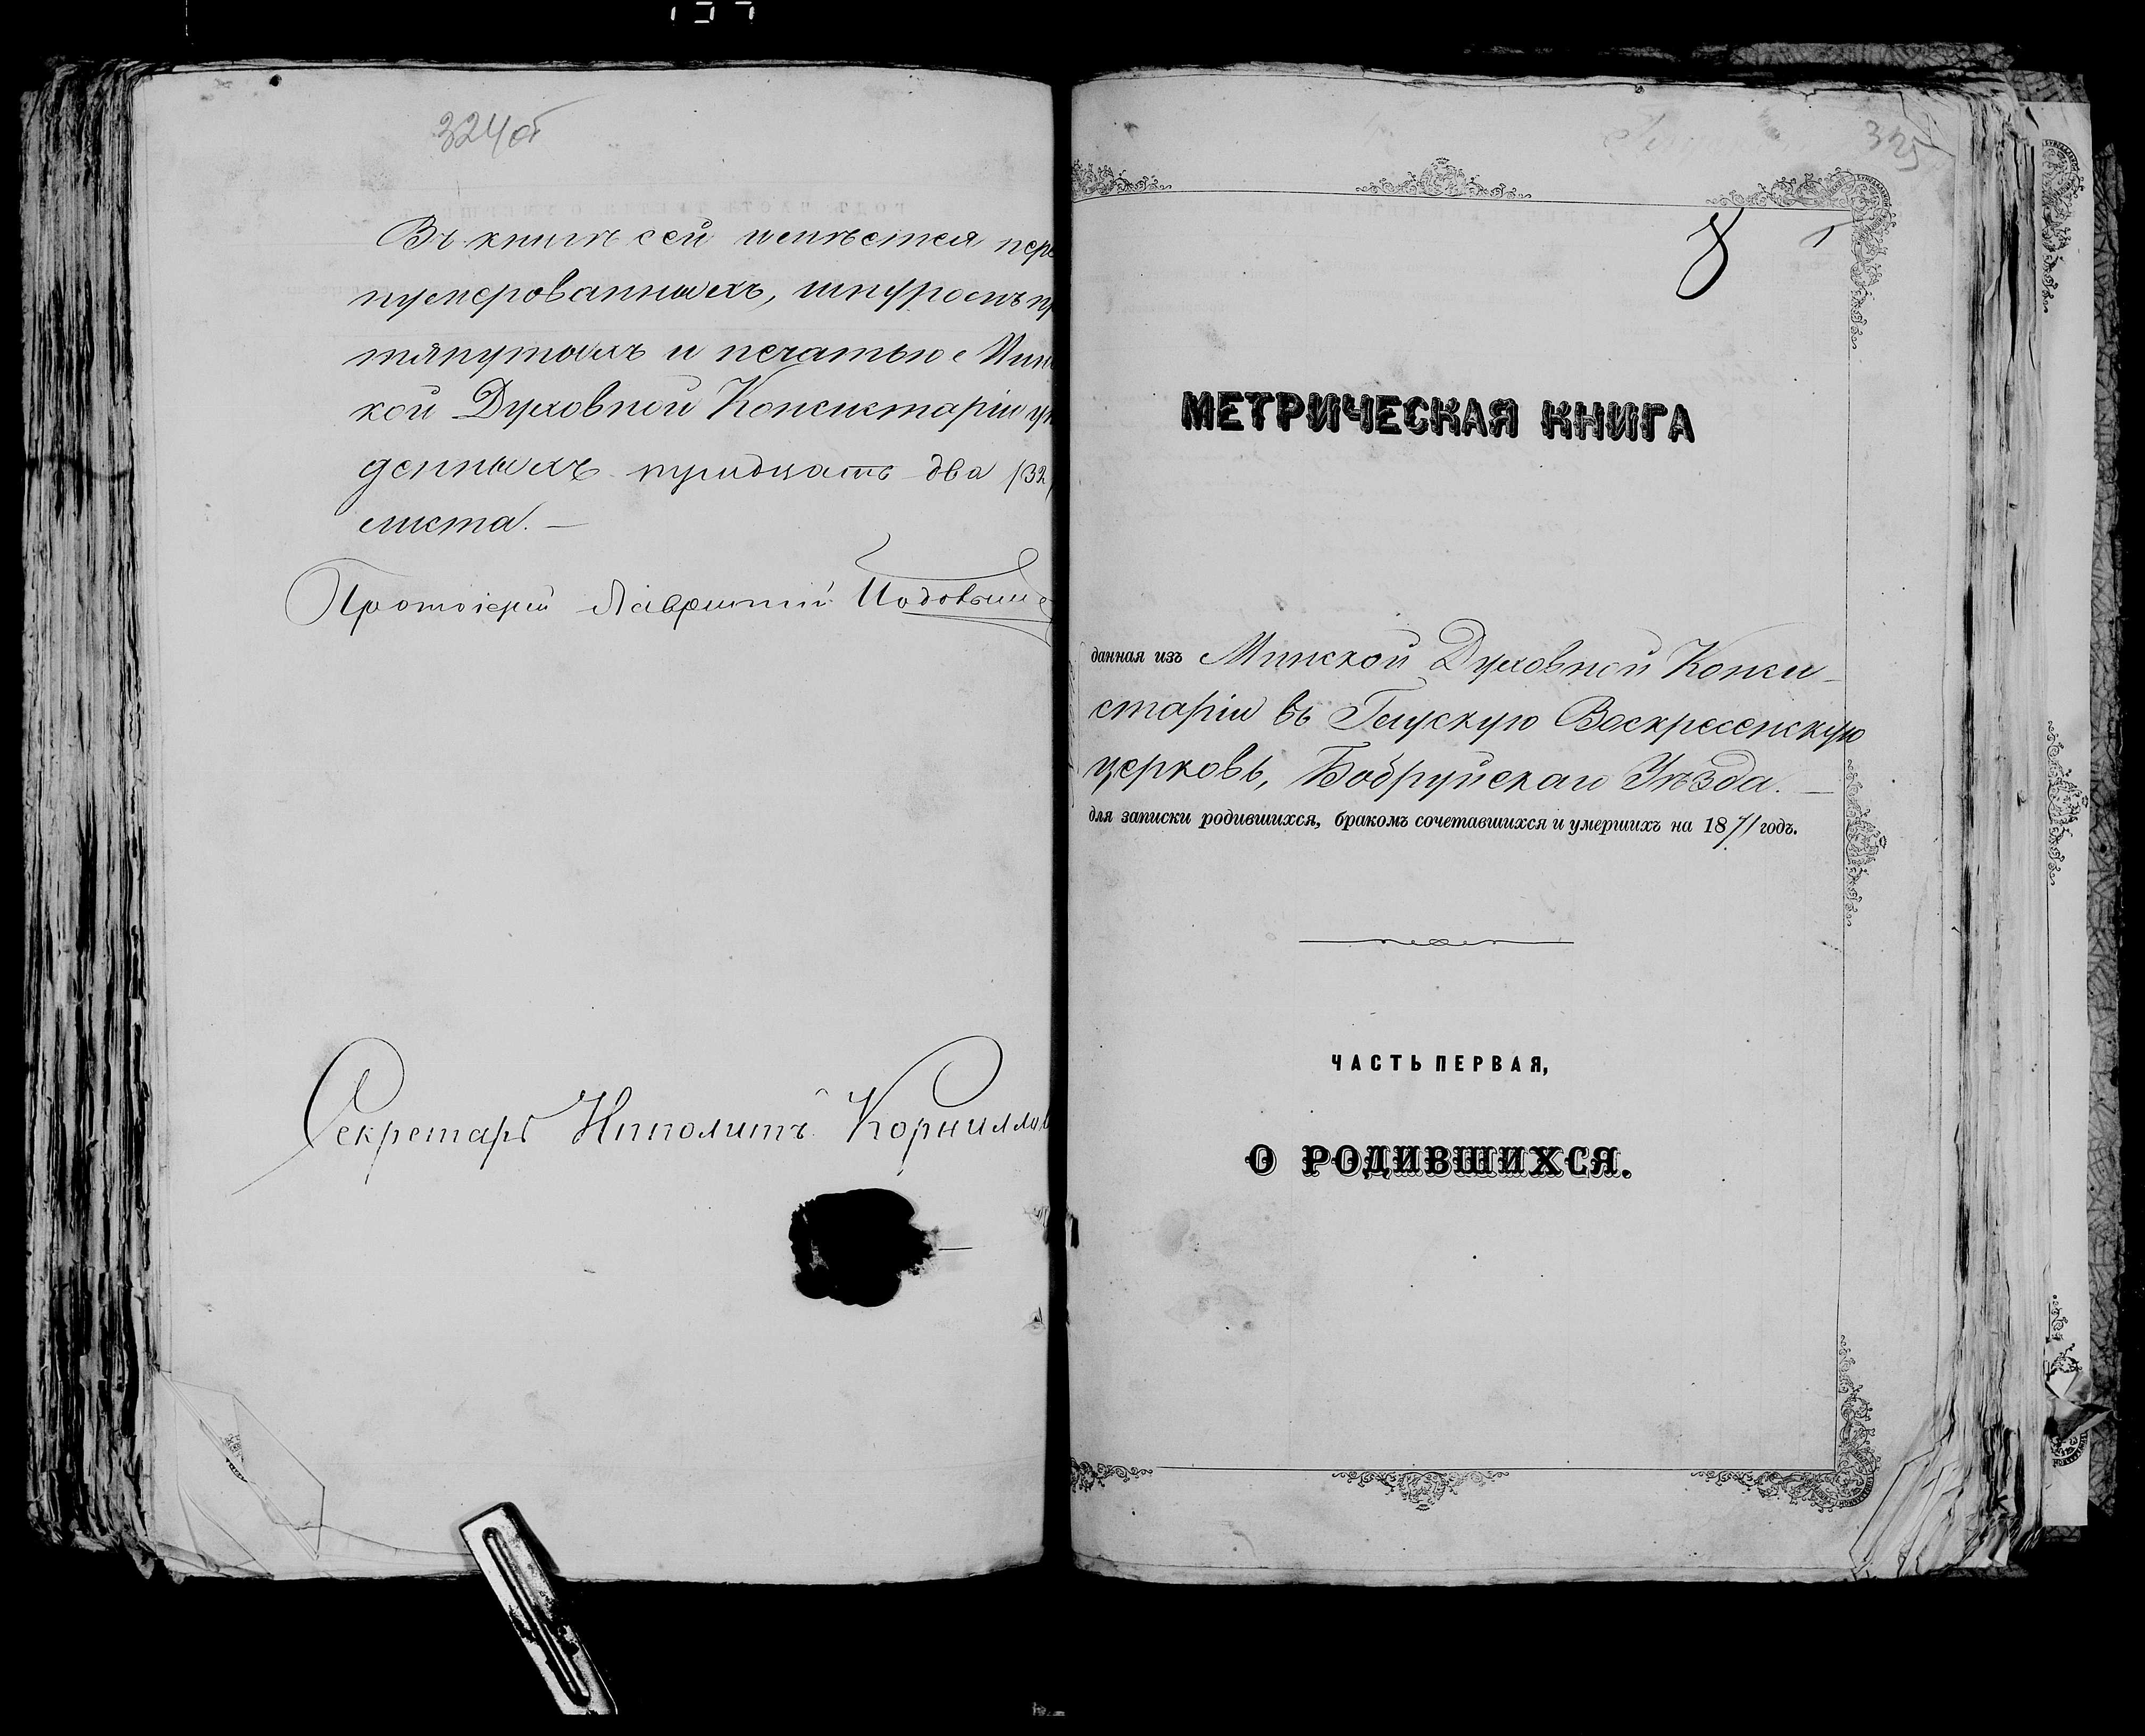 324об
Въ книгѣ сей имѣется пере
нумерованныхъ, шнуромъ пр
тянутыхъ и печатью Мин
кой Духовной Консисторіи ут
денныхъ тридцать два /32/
листа. —
Протоіерей Лаврентій
Секретарь Ипполитъ
325
8
МЕТРИЧЕСКАЯ КНИГА
данная изъ Минской Духовной Конси-
сторіи въ Глускую Воскресенскую
церковь, Бобруйскаго Уѣзда. —
для записки родившихся, бракомъ сочетавшихся и умершихъ на 1871 годъ.
ЧАСТЬ ПЕРВАЯ,
О РОДИВШИХСЯ.